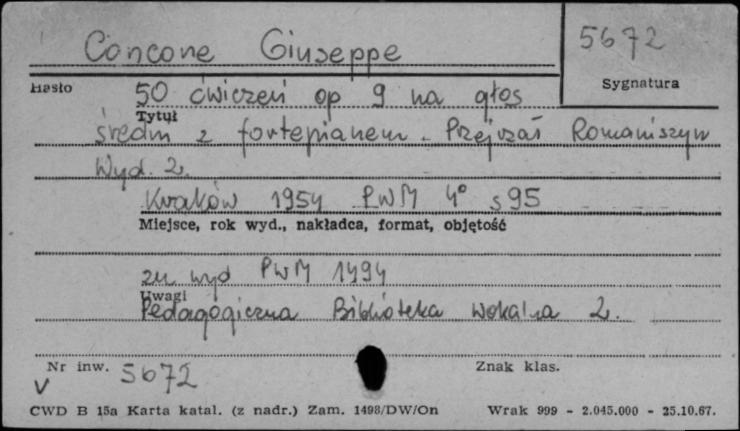 Concone Giuseppe
5672
Hasło
Sygnatura
50 ćwiczeń op 9 na głos
Tytuł
średni z fortepianem. Przejrzał Romaniszyn
Wyd. 2.
Kraków 1954 PWM 4° s 95
Miejsce, rok wyd., nakładca, format, objętość
zn wyd PWM 1494
Uwagi
Pedagogiczna Biblioteka Wokalna 2.
Nr inw. 5672
Znak klas.
V
CWD B 15a Karta katal. (z nadr.) Zam. 1498/DW/On
Wrak 999 - 2.045.000 - 25.10.67.